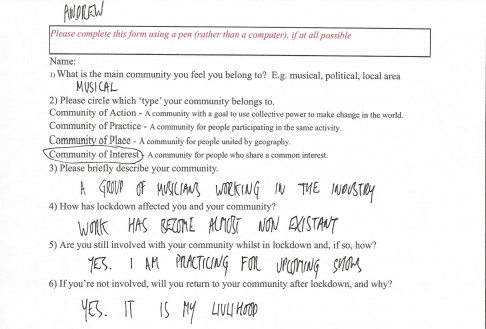 ANDREW
Please complete this form using a pen (rather than a computer), if at all possible
Name:
1) What is the main community you feel you belong to? E.g. musical, political, local area
MUSICAL
2) Please circle which 'type' your community belongs to.
Community of Action - A community with a goal to use collective power to make change in the world.
Community of Practice - A community for people participating in the same activity.
Community of Place - A community for people united by geography.
Community of Interest) A community for people who share a common interest.
3) Please briefly describe your community.
A GROUP OF MUSICIANS WORKING IN THE INDUSTRY
4) How has lockdown affected you and your community?
WORK HAS BECOME ALMOST NON EXISTANT
5) Are you still involved with your community whilst in lockdown and, if so, how?
YES. I AM PRACTICING FOR UPCOMING SHOWS
6) If you're not involved, will you return to your community after lockdown, and why?
YES. IT IS MY LIVLIHOOD